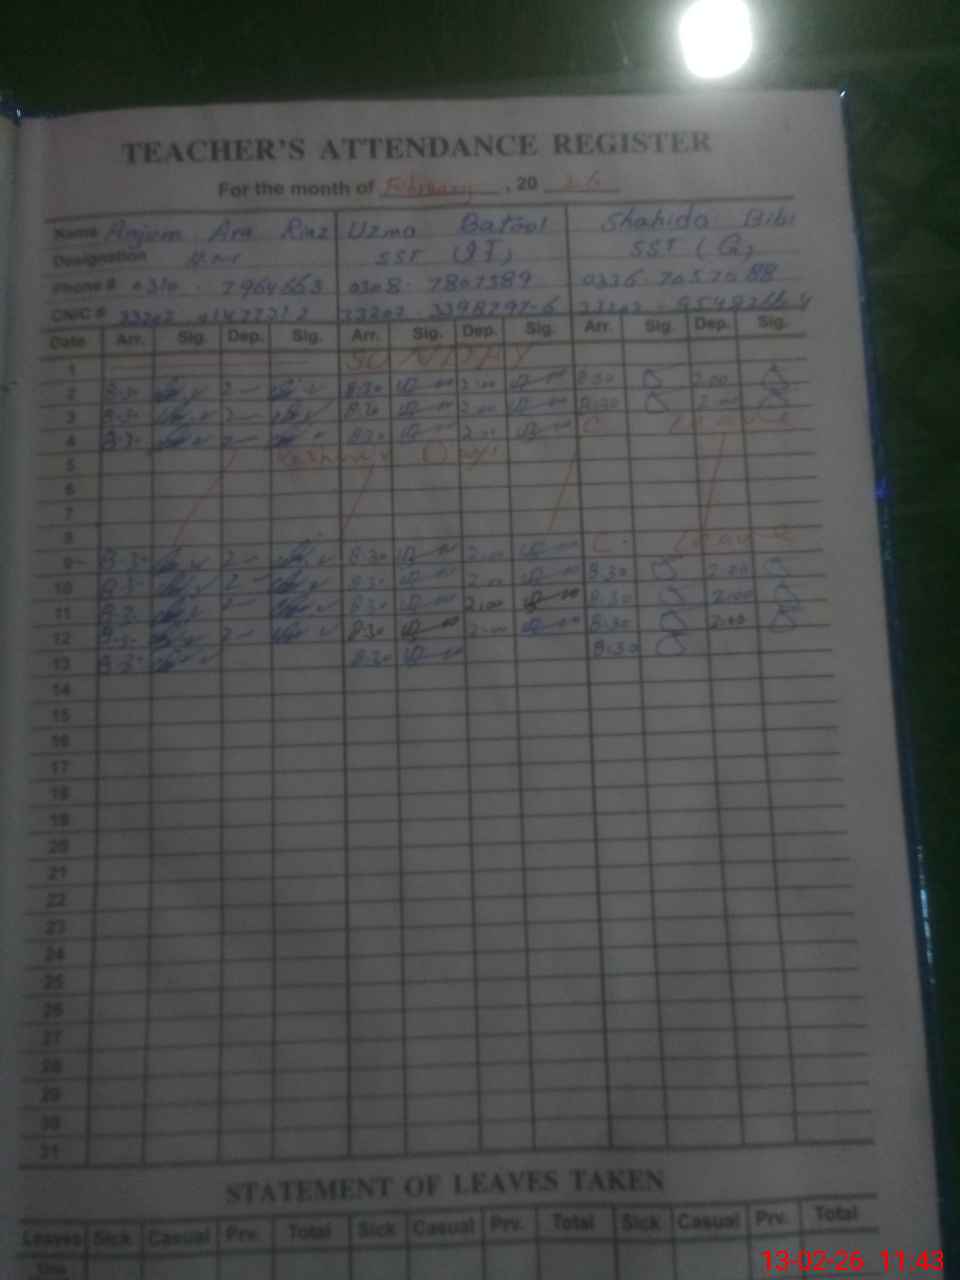 TEACHER'S ATTENDANCE REGISTER
For the month of February, 20 26
Name Anjum Ara Riaz Uzma Batool Shahida Bibi
Designation SST (IT) SST (G)
Phone # 0310 0308 7807389 0336
CNIC # 33202 33202 33202
Date Arr. Sig. Dep. Sig. Arr. Sig. Dep. Sig. Arr. Sig. Dep. Sig.
1 SUNDAY
2 8:30 2 8:30 2:00 8:30 2:00
3 8:30 2 8:30 2:00 8:30 2:00
4 8:30 2 8:30 2:00 C. Leave
5 Kashmir Day
6
7
8
9 8:30 2 8:30 2:00 C. Leave
10 8:30 2 8:30 2:00 8:30 2:00
11 8:30 2 8:30 2:00 8:30 2:00
12 8:30 2 8:30 2:00 8:30 2:00
13 8:30 8:30 8:30
14
15
16
17
18
19
20
21
22
23
24
25
26
27
28
29
30
31
STATEMENT OF LEAVES TAKEN
Leaves Sick Casual Prv. Total Sick Casual Prv. Total Sick Casual Prv. Total
13-02-26 11:43